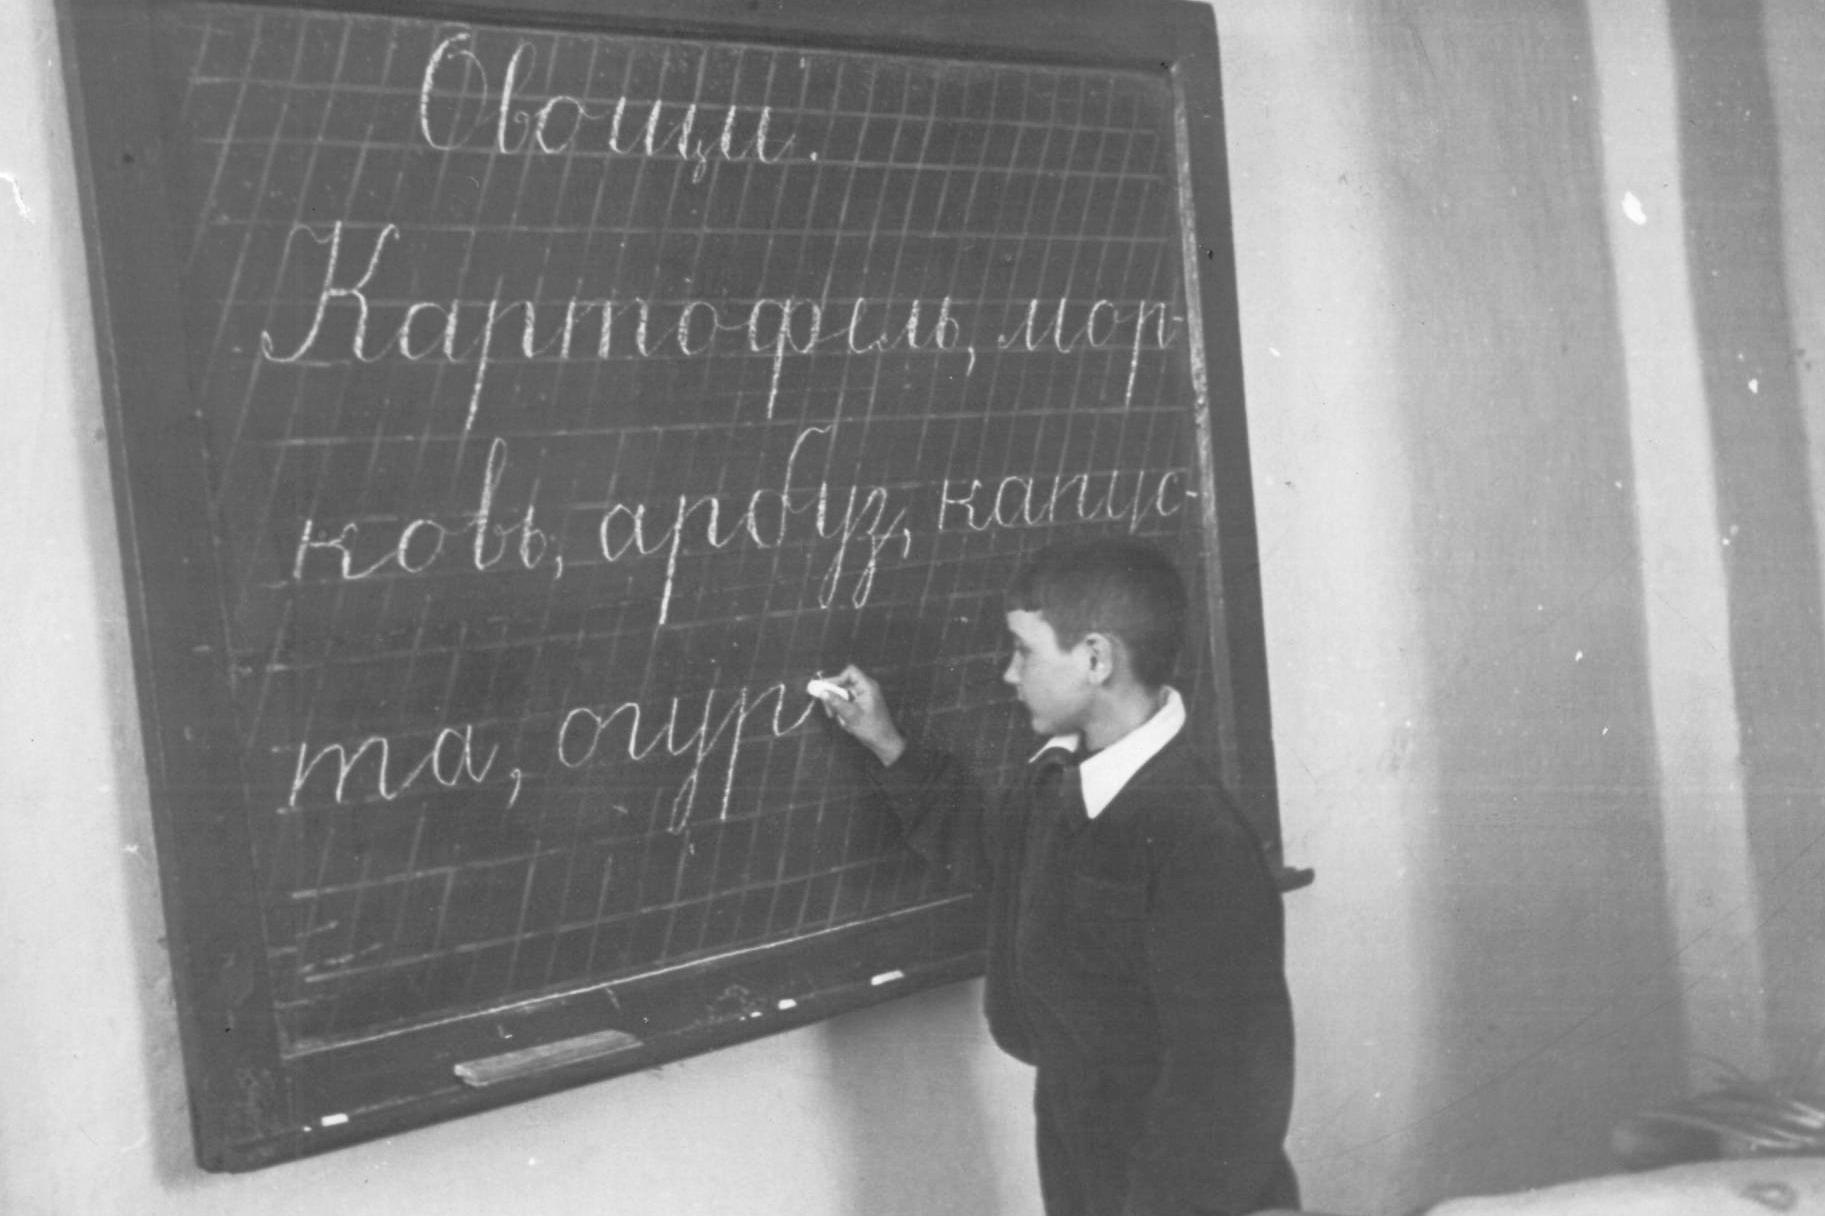 Овощи.
Картофель, мор-
ковь, арбуз, капус-
та, огур